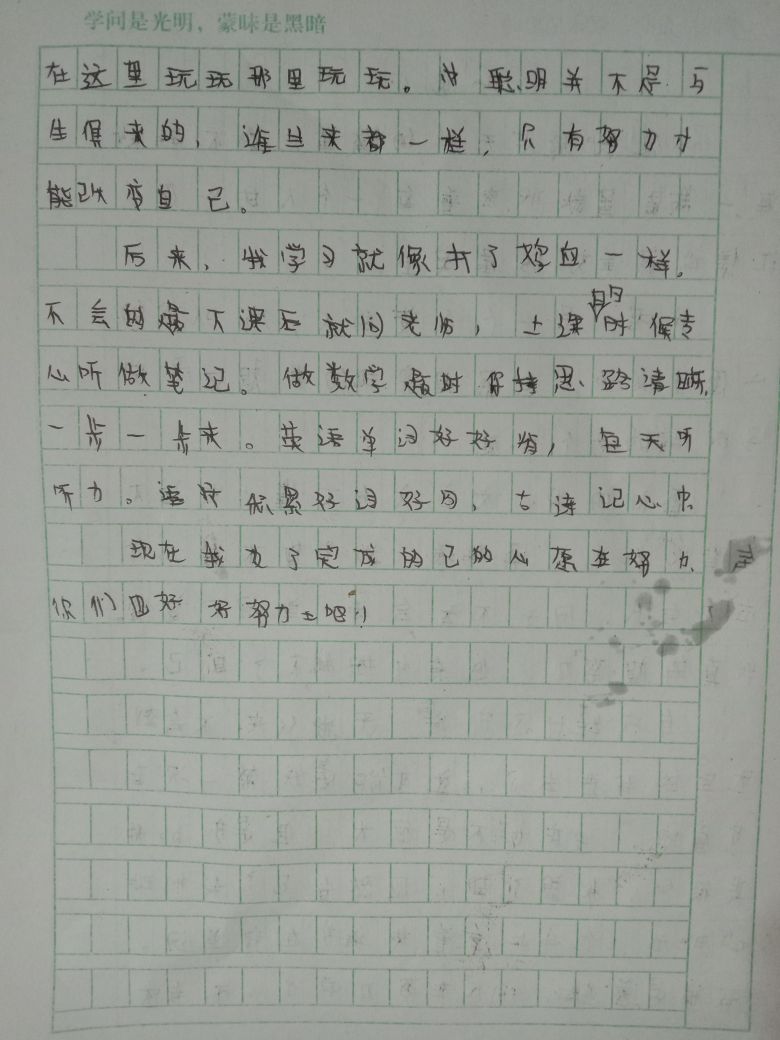 学问是光明，蒙昧是黑暗
在这里玩玩那里玩玩。聪明并不是与
生俱来的，谁生来都一样，只有努力才
能改变自己。
后来，我学习就像打了鸡血一样。
不会的题下课后就问老师，上课的时候专
心听做笔记。做数学题时保持思路清晰，
一步一步来。英语单词好好背，每天听
听力。语文积累好词好句，古诗记心中
现在我为了完成的己的心愿在努力
你们也好好努力吧！